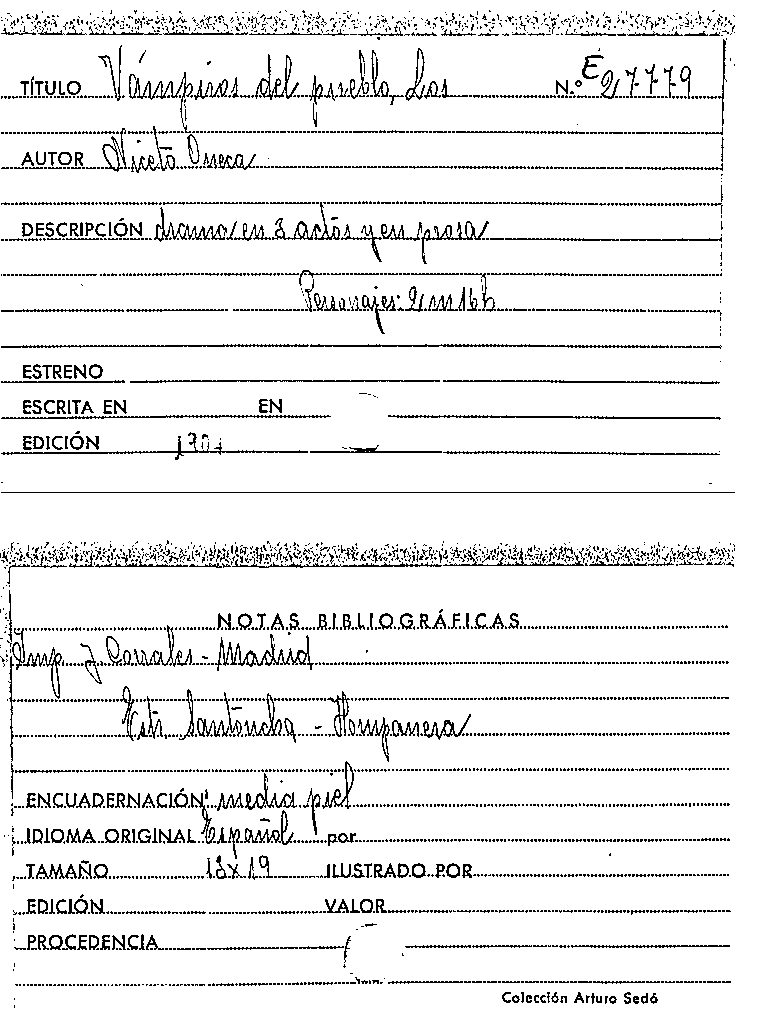 TÍTULO Vámpiros del pueblo, Los N.º E 27779
AUTOR Niceto Oneca
DESCRIPCIÓN drama en 3 actos y en prosa
Personajes: 2 m 16 h
ESTRENO
ESCRITA EN EN
EDICIÓN
NOTAS BIBLIOGRÁFICAS
Imp. J Corrales - Madrid
Estr.
ENCUADERNACIÓN media piel
IDIOMA ORIGINAL Español por
TAMAÑO 13 x 19 ILUSTRADO POR
EDICIÓN VALOR
PROCEDENCIA
Colección Arturo Sedó